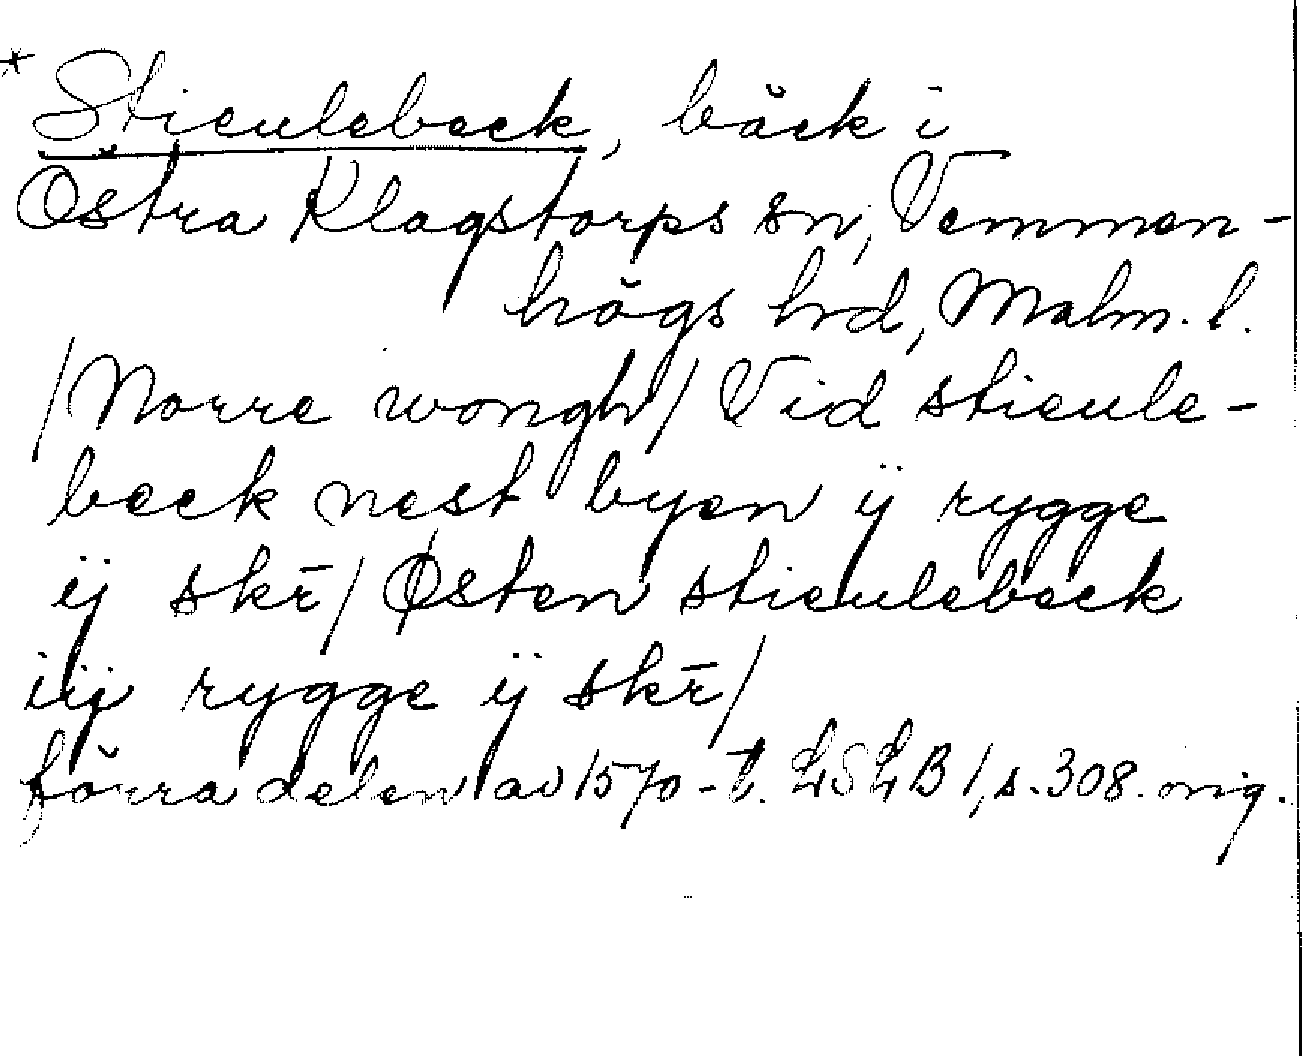 * Stieulebeck, bäck i
Östra Klagstorps sn, Vemmen-
högs hd, Malm. l.
/Norre wongh/ Vid stieule-
beck nest byen ij rygge
ij skr̄/ Østen stieulebeck
iij rygge ij skr̄/
förra delen av 1570-t. LSLB 1, s. 308. orig.